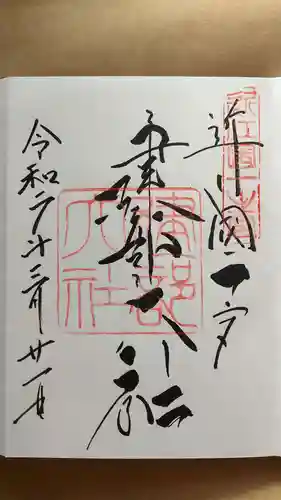 近江國一之宮
近江國一宮
建部大社
建部
大社
令和二年三月廿一日